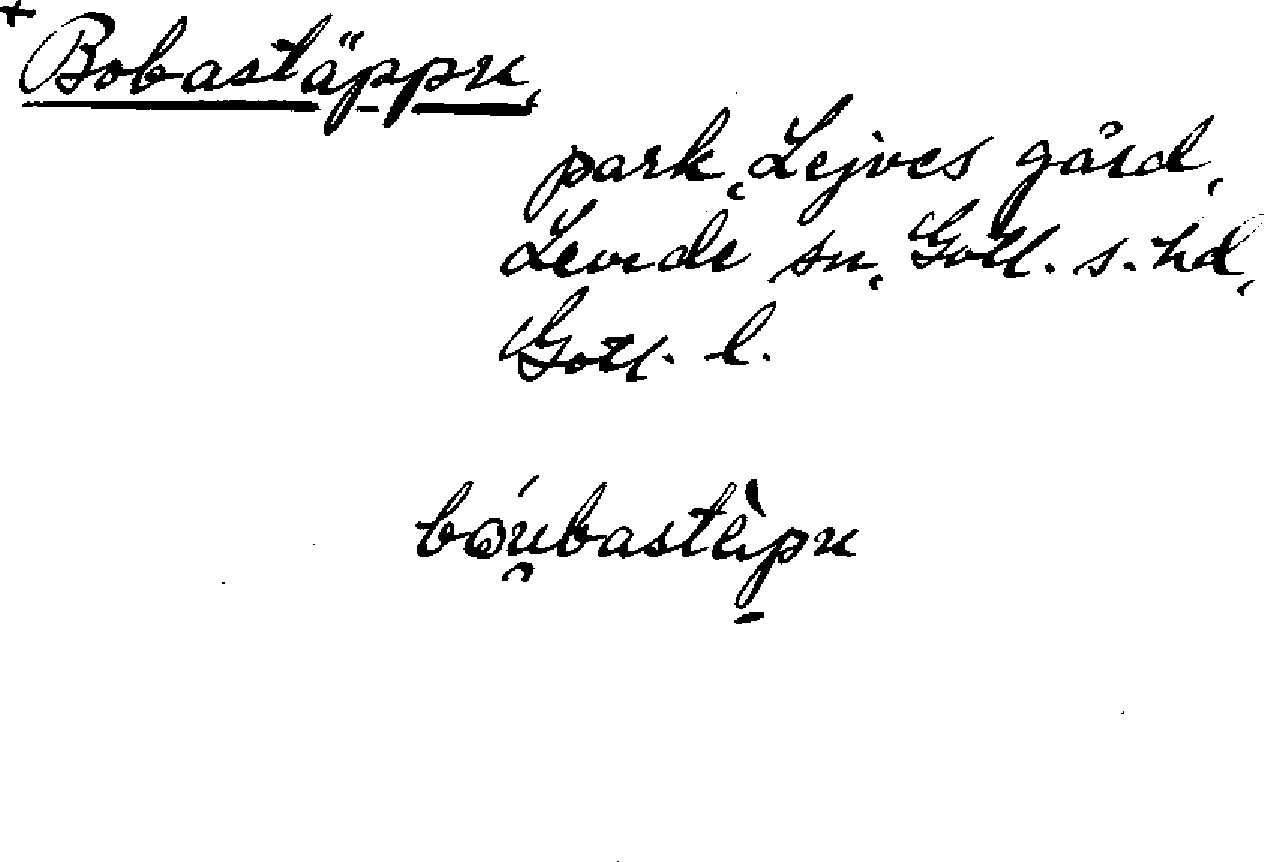 +
Bobastäppu,
park, Lejves gård,
Levide sn, Gotl. s. hd,
Gotl. l.
bo̯úbastèp̱u